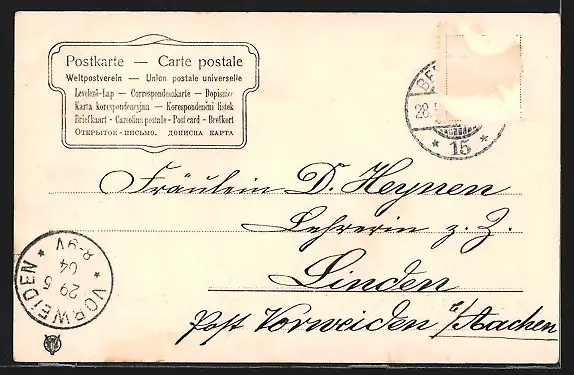 Postkarte — Carte postale
Weltpostverein — Union postale universelle
Levelező-Lap — Correspondenzkarte — Dopisnice
Karta korespondencyjna — Korespondenční lístek
Briefkaart - Cartolina postale - Post card - Brefkort
ОТКРЫТОЕ-ПИСЬМО. ДОПИСНА КАРТА
BE
28.5
* 15 *
Fräulein D. Heynen
Lehrerin z. Z.
Linden
Post Vorweiden b/Aachen
* VORWEIDEN *
29 5
04
8-9V